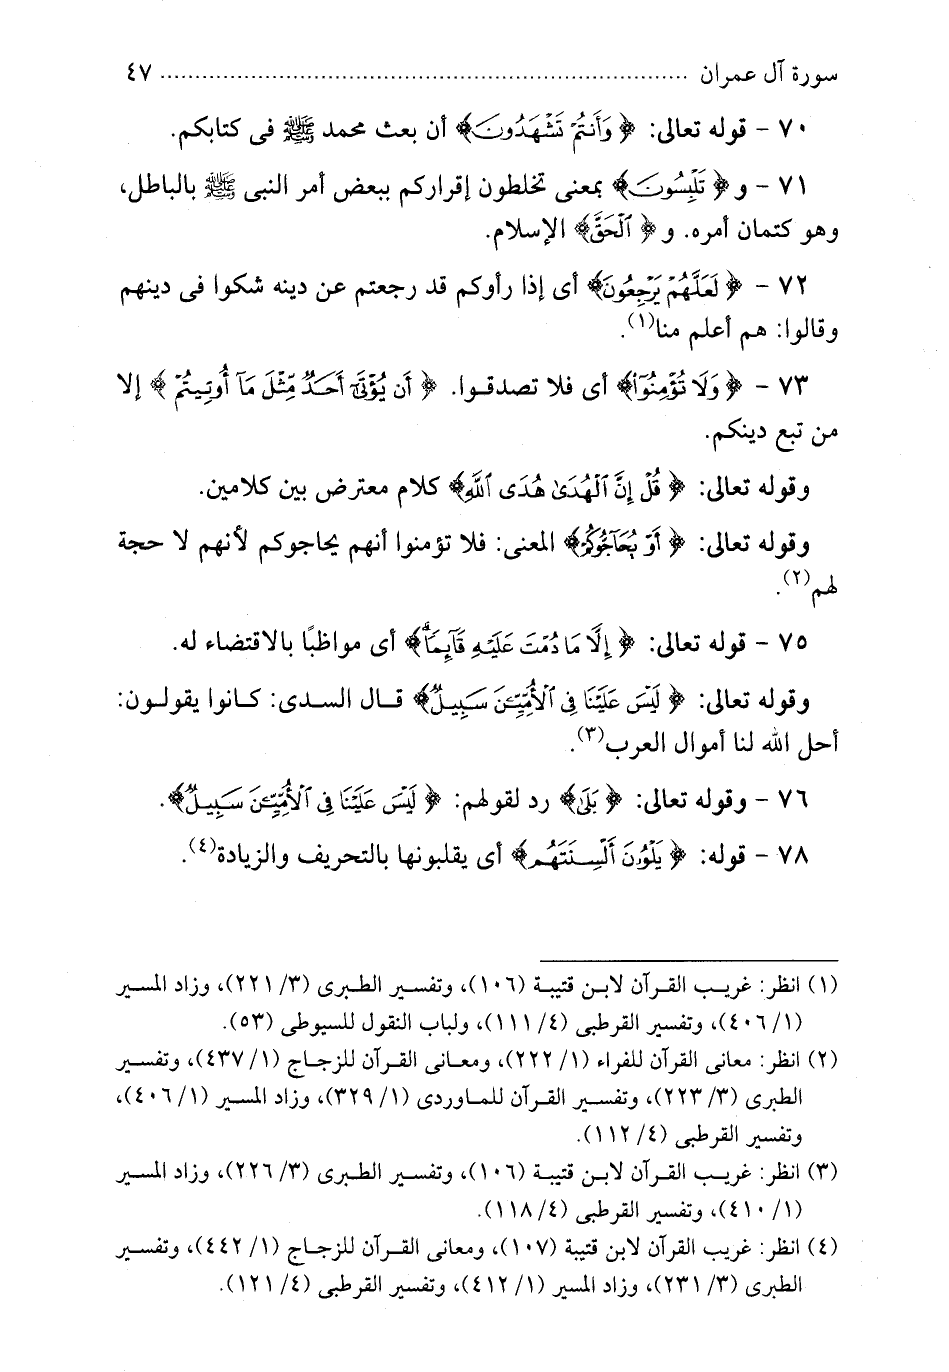 سورة آل عمران ........................................................................... ٤٧
٧٠ - قوله تعالى: ﴿وَأَنتُمْ تَشْهَدُونَ﴾ أن بعث محمد ﷺ فى كتابكم.
٧١ - و﴿تَلْبِسُونَ﴾ بمعنى تخلطون إقراركم ببعض أمر النبى ﷺ بالباطل،
وهو كتمان أمره. و﴿ٱلْحَقَّ﴾ الإسلام.
٧٢ - ﴿لَعَلَّهُمْ يَرْجِعُونَ﴾ أى إذا رأوكم قد رجعتم عن دينه شكوا فى دينهم
وقالوا: هم أعلم منا(١).
٧٣ - ﴿وَلَا تُؤْمِنُوٓا۟﴾ أى فلا تصدقوا. ﴿أَن يُؤْتَىٰٓ أَحَدٌ مِّثْلَ مَآ أُوتِيتُمْ﴾ إلا
من تبع دينكم.
وقوله تعالى: ﴿قُلْ إِنَّ ٱلْهُدَىٰ هُدَى ٱللَّهِ﴾ كلام معترض بين كلامين.
وقوله تعالى: ﴿أَوْ يُحَآجُّوكُمْ﴾ المعنى: فلا تؤمنوا أنهم يحاجوكم لأنهم لا حجة
لهم(٢).
٧٥ - قوله تعالى: ﴿إِلَّا مَا دُمْتَ عَلَيْهِ قَآئِمًا ۗ﴾ أى مواظبًا بالاقتضاء له.
وقوله تعالى: ﴿لَيْسَ عَلَيْنَا فِى ٱلْأُمِّيِّـۧنَ سَبِيلٌ﴾ قال السدى: كانوا يقولون:
أحل الله لنا أموال العرب(٣).
٧٦ - وقوله تعالى: ﴿بَلَىٰ﴾ رد لقولهم: ﴿لَيْسَ عَلَيْنَا فِى ٱلْأُمِّيِّـۧنَ سَبِيلٌ﴾.
٧٨ - قوله: ﴿يَلْوُۥنَ أَلْسِنَتَهُم﴾ أى يقلبونها بالتحريف والزيادة(٤).
(١) انظر: غريب القرآن لابن قتيبة (١٠٦)، وتفسير الطبرى (٣/ ٢٢١)، وزاد المسير
(١/ ٤٠٦)، وتفسير القرطبى (٤/ ١١١)، ولباب النقول للسيوطى (٥٣).
(٢) انظر: معانى القرآن للفراء (١/ ٢٢٢)، ومعانى القرآن للزجاج (١/ ٤٣٧)، وتفسير
الطبرى (٣/ ٢٢٣)، وتفسير القرآن للماوردى (١/ ٣٢٩)، وزاد المسير (١/ ٤٠٦)،
وتفسير القرطبى (٤/ ١١٢).
(٣) انظر: غريب القرآن لابن قتيبة (١٠٦)، وتفسير الطبرى (٣/ ٢٢٦)، وزاد المسير
(١/ ٤١٠)، وتفسير القرطبى (٤/ ١١٨).
(٤) انظر: غريب القرآن لابن قتيبة (١٠٧)، ومعانى القرآن للزجاج (١/ ٤٤٢)، وتفسير
الطبرى (٣/ ٢٣١)، وزاد المسير (١/ ٤١٢)، وتفسير القرطبى (٤/ ١٢١).